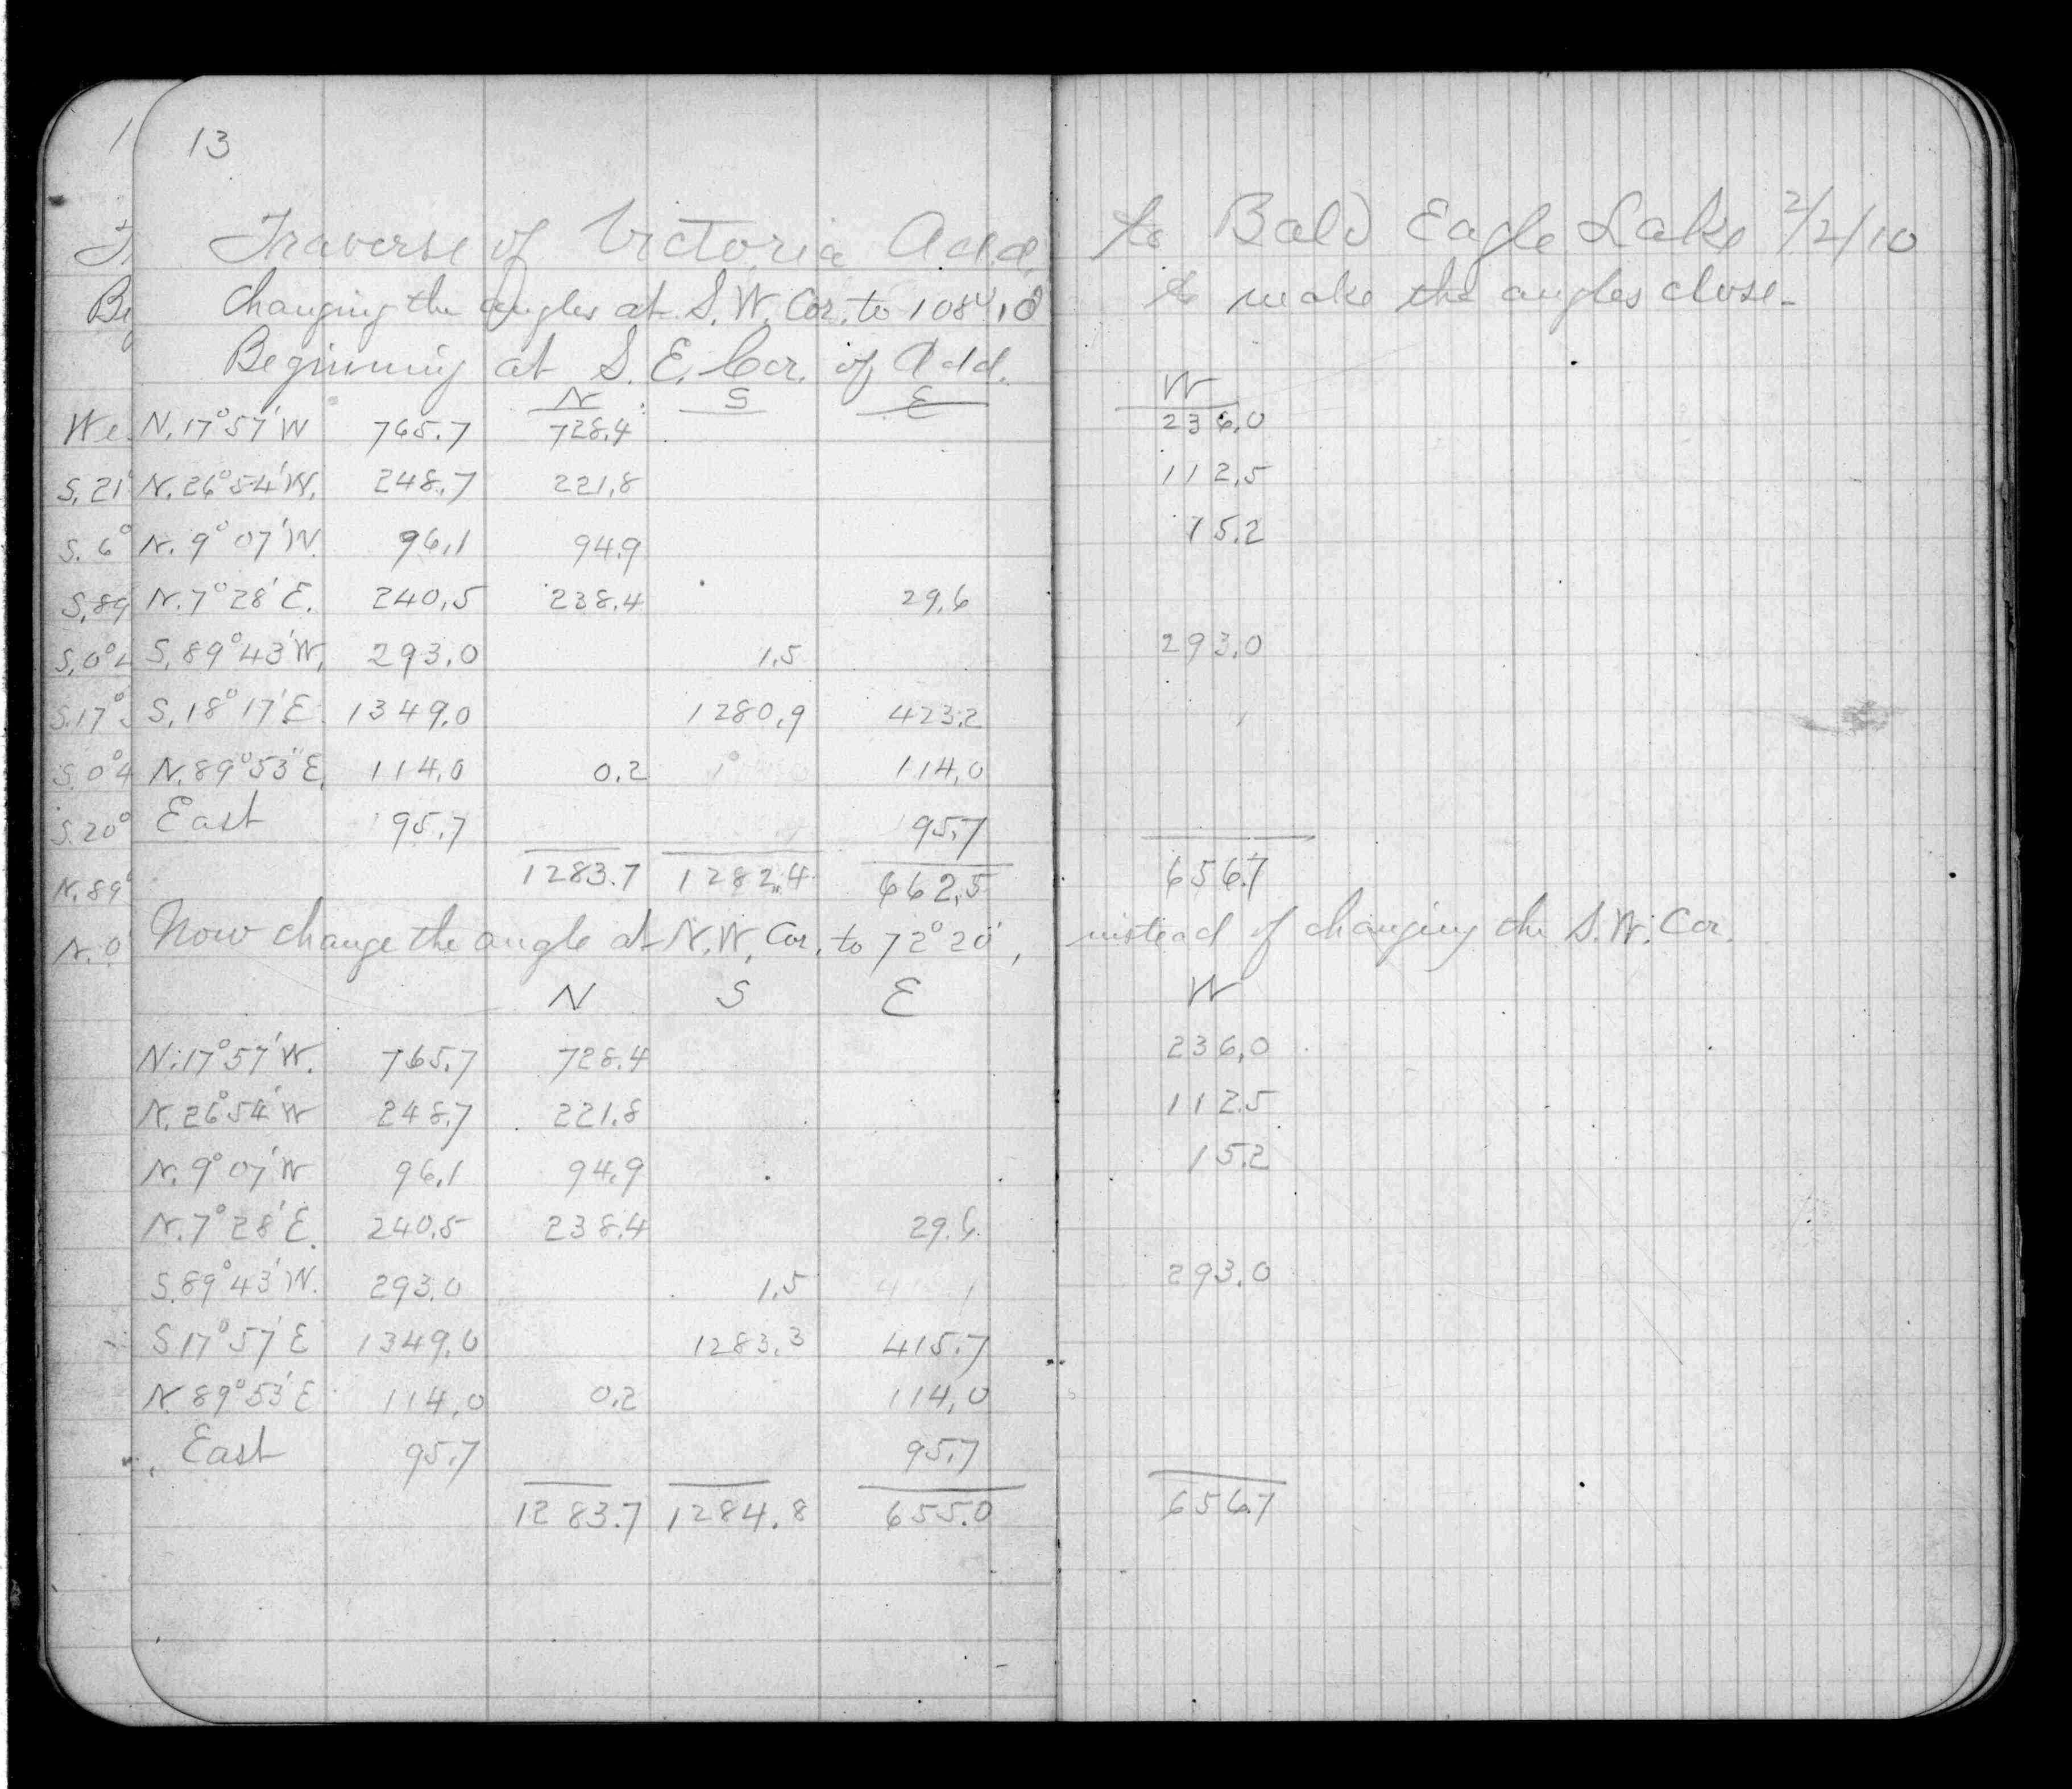 13
Traverse of Victoria Add. to Bald Eagle Lake 2/2/10
Changing the angles at S.W. Cor. to 108°10' to make the angles close-
Beginning at S.E. Cor. of Add.
N S E W
We N. 17°57' W 765.7 728.4 236.0
S. 21° N. 26°54' W. 248.7 221.8 112.5
S. 6° N. 9°07' W. 96.1 94.9 15.2
S. 89 N. 7°28' E. 240.5 238.4 29.6
S. 0°4 S. 89°43' W. 293.0 1.5 293.0
S. 17° S. 18°17' E. 1349.0 1280.9 423.2
S. 0°4 N. 89°53' E. 114.0 0.2 114.0
S. 20° East 95.7 95.7
N. 89° 1283.7 1282.4 662.5 656.7
N. 0 Now change the angle at N.W. Cor. to 72°20', instead of changing the S.W. Cor.
N S E W
N. 17°57' W. 765.7 728.4 236.0
N. 26°54' W 248.7 221.8 112.5
N. 9°07' W 96.1 94.9 15.2
N. 7°28' E. 240.5 238.4 29.6
S. 89°43' W. 293.0 1.5 293.0
S 17°57' E 1349.0 1283.3 415.7
N. 89°53' E 114.0 0.2 114.0
East 95.7 95.7
1283.7 1284.8 655.0 656.7